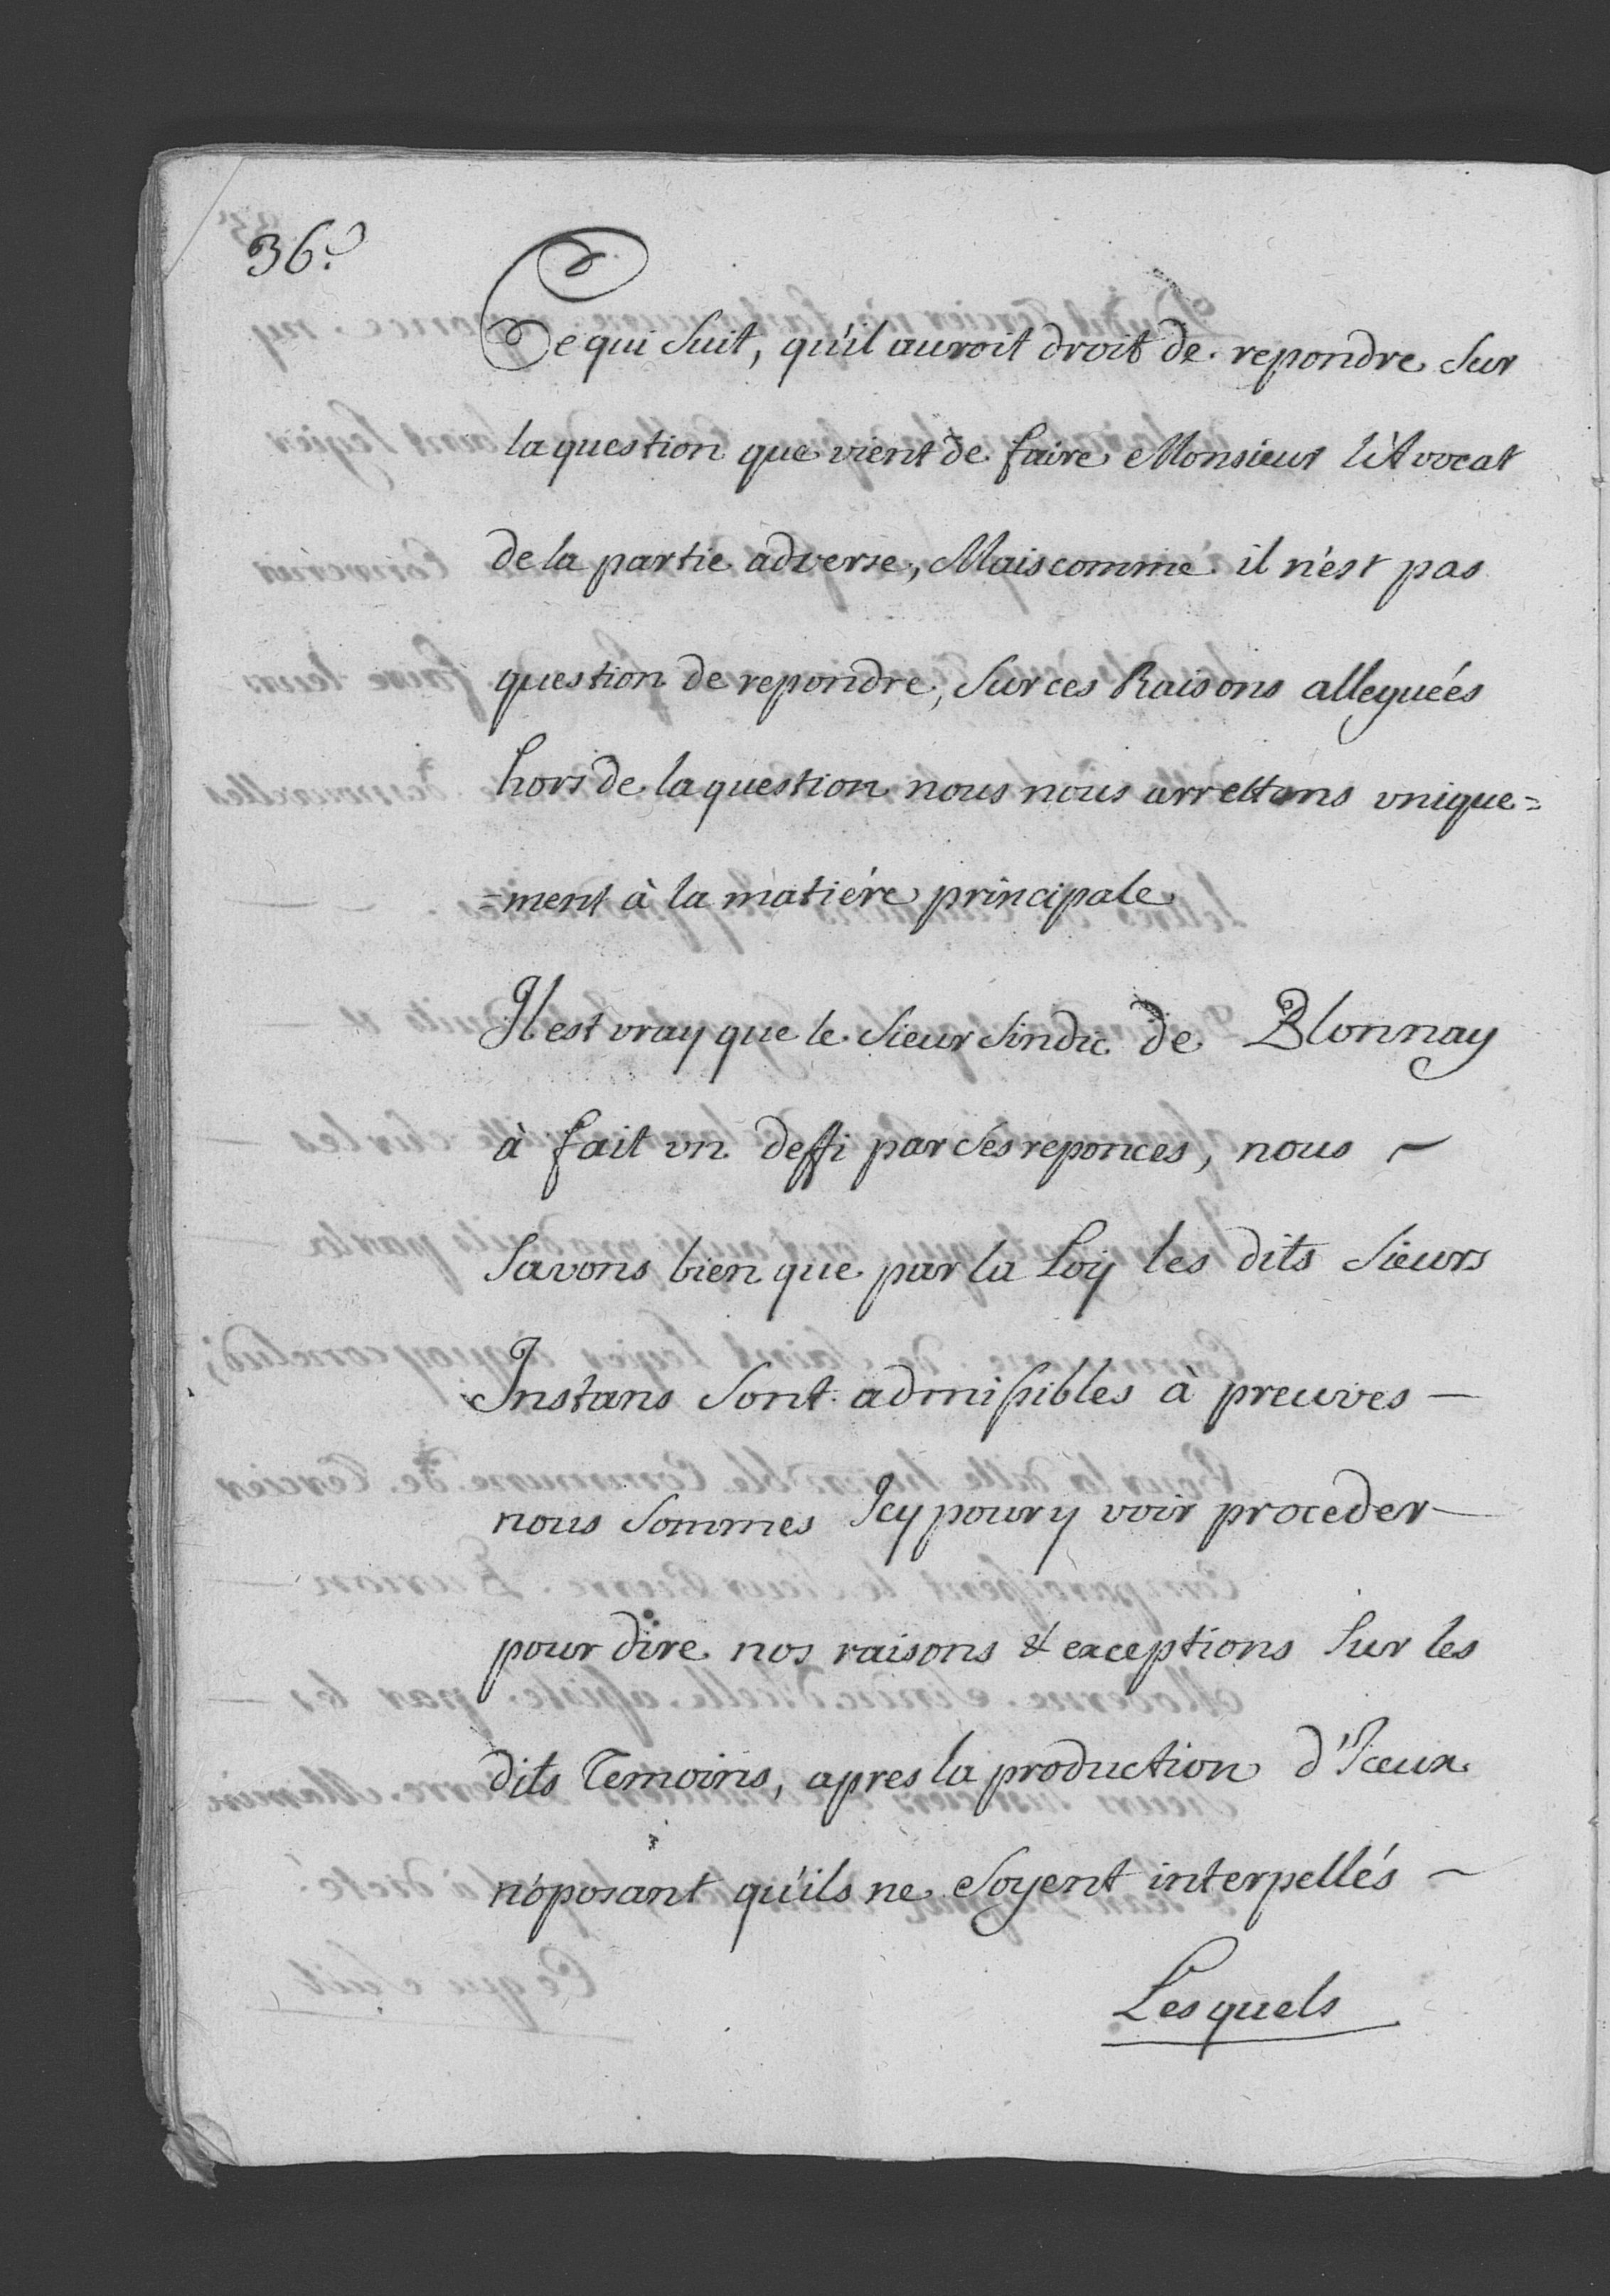 36.
Ce qui suit, qu'il auroit droit de repondre sur
la question que vient de faire Monsieur l'Avocat
de la partie adverse, Mais comme il n'est pas
question de repondre, sur ces Raisons alleguées
hors de la question nous nous arrettons vnique=
=ment à la matiére principale
Il est vray que le Sieur Sindic de Blonnay
à fait vn deffi par ses reponces, nous ~
savons bien que par la Loy les dits Sieurs
Instans sont admissibles à preuves —
nous sommes Icy pour y voir proceder —
pour dire nos raisons & exceptions sur les
dits Temoins, apres la production d'Iceux
n'oposant qu'ils ne soyent interpellés ~
Lesquels